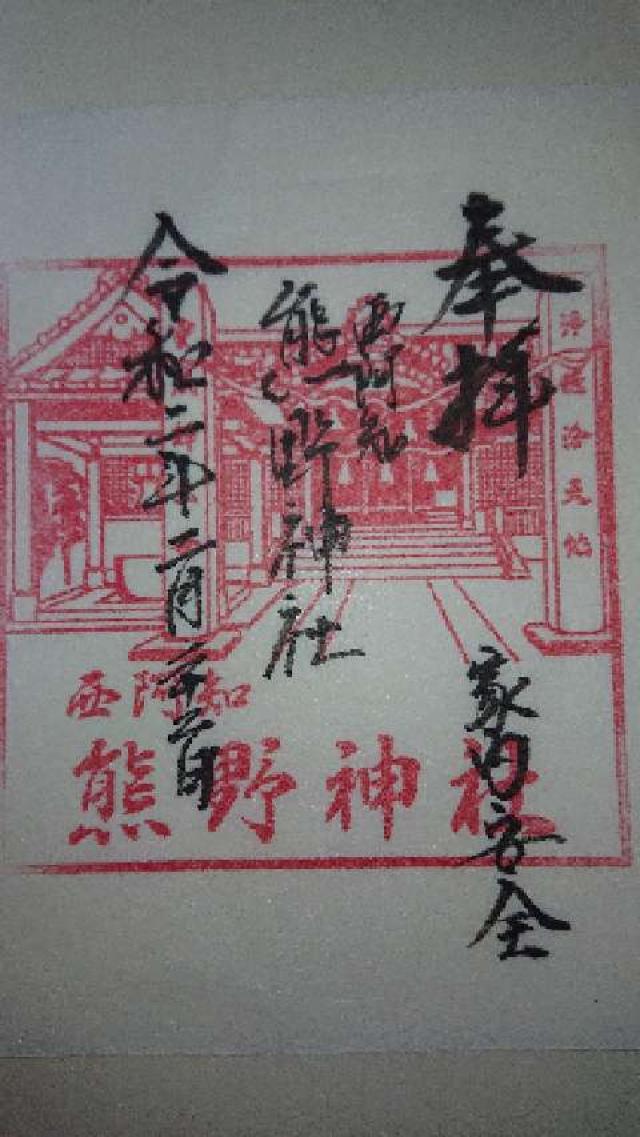 奉拝
家内安全
西阿知
熊野神社
令和二年二月二十六日
西阿知
熊野神社